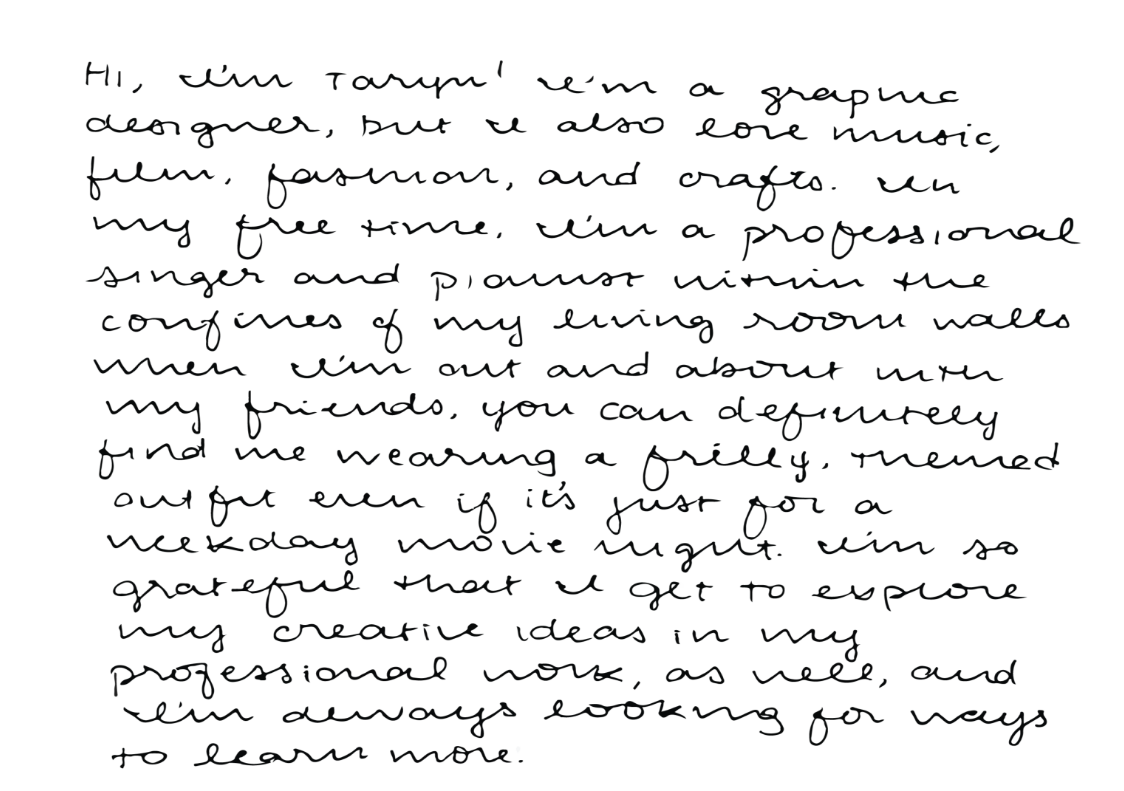 Hi, I'm Taryn! I'm a graphic
designer, but I also love music,
film, fashion, and crafts. In
my free time, I'm a professional
singer and pianist within the
confines of my living room walls
when I'm out and about with
my friends, you can definitely
find me wearing a frilly, themed
outfit even if it's just for a
weekday movie night. I'm so
grateful that I get to explore
my creative ideas in my
professional work, as well, and
I'm always looking for ways
to learn more.